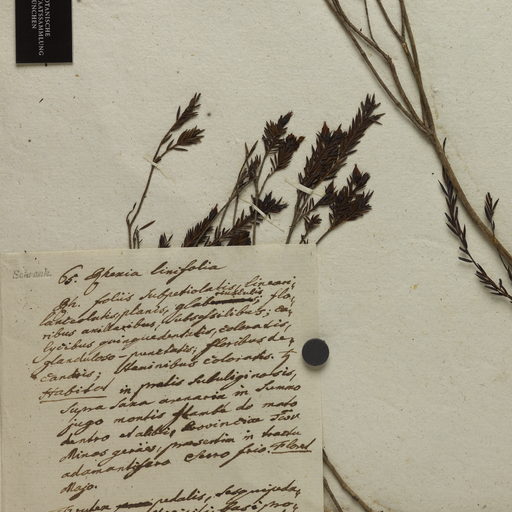 BOTANISCHE
STAATSSAMMLUNG
MÜNCHEN
Schrank.
65. Ghenia linifolia
Gh. foliis subpetiolatis, lineari,
lanceolatis, planis, glabriusculis; flo,
ribus axillaribus, subsessilibus, ca,
lycibus quinquedentatis, coloratis,
glanduloso-punctatis, floribus de,
candris; staminibus coloratis. ♄
Habitat in pratis subuliginosis,
supra saxa arenaria in summo
jugo montis do mato
dentro et alibi Provinciae
Minas geraës, praesertim in tractu
adamantifero Serro frio. Floret
Majo.
pedalis, sesquipeda,